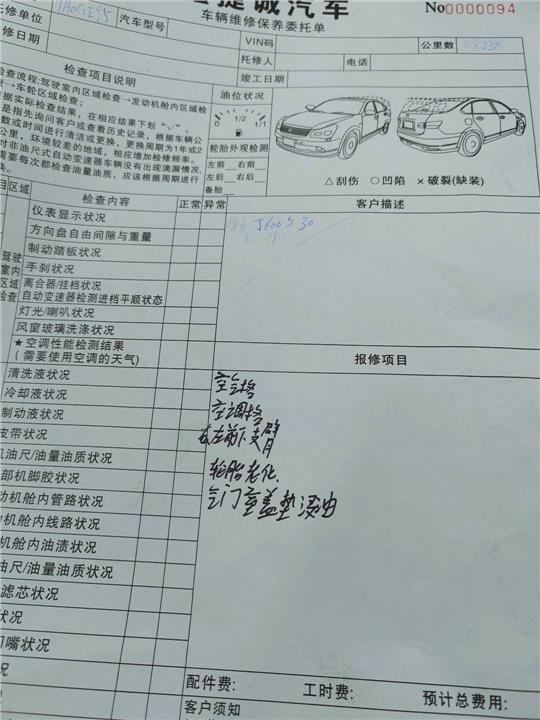 捷诚汽车
No0000094
车辆维修保养委托单
托修单位
汽车型号
VIN码
公里数
修日期
托修人
电话
竣工日期
检查项目说明
油位状况
检查流程:驾驶室内区域检查→发动机舱内区域检
→车轮区域检查;
根据实际检查结果,在相应结果下划“√”。
是指先询问客户或查看历史记录,根据车辆公
数或时间进行清洁或更换,更换周期为1年或2
公里,环境较差的地域,相应增加检修频率。
对非油尺式自动变速器车辆没有出现滴漏情况,
需要每次都检查油量油质,应该根据周期进行
换。
0 1/2 1/1
轮胎外观检测
左前 右前
左后 右后
备胎
△刮伤 ○凹陷 ×破裂(缺装)
目区域
检查内容
正常
异常
客户描述
驾驶
室内
区域
检查
仪表显示状况
方向盘自由间隙与重量
制动踏板状况
手刹状况
离合器/挂档状况
自动变速器检测进档平顺状态
灯光/喇叭状况
风窗玻璃洗涤状况
★空调性能检测结果
(需要使用空调的天气)
报修项目
清洗液状况
冷却液状况
制动液状况
皮带状况
机油尺/油量油质状况
部机脚胶状况
动机舱内管路状况
机舱内线路状况
机舱内油渍状况
油尺/油量油质状况
滤芯状况
状况
门嘴状况
况
空气格
空调格
右左前下支臂
轮胎老化
气门室盖垫浸油
配件费:
工时费:
预计总费用:
客户须知